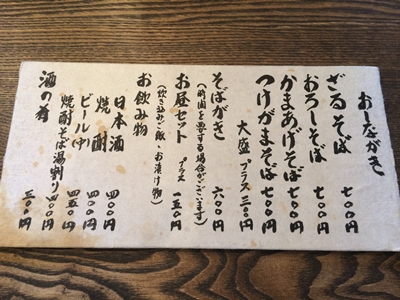 おしながき
ざるそば 七〇〇円
おろしそば 七〇〇円
かまあげそば 七〇〇円
つけがまそば 七〇〇円
大盛プラス 三〇〇円
そばがき 六〇〇円
(時間を要する場合がございます)
お昼セット プラス 一五〇円
(炊き込みご飯、お漬け物)
お飲み物
日本酒 四〇〇円
焼酎 四〇〇円
ビール(中) 四五〇円
焼酎そば湯割り 四〇〇円
酒の肴 三〇〇円